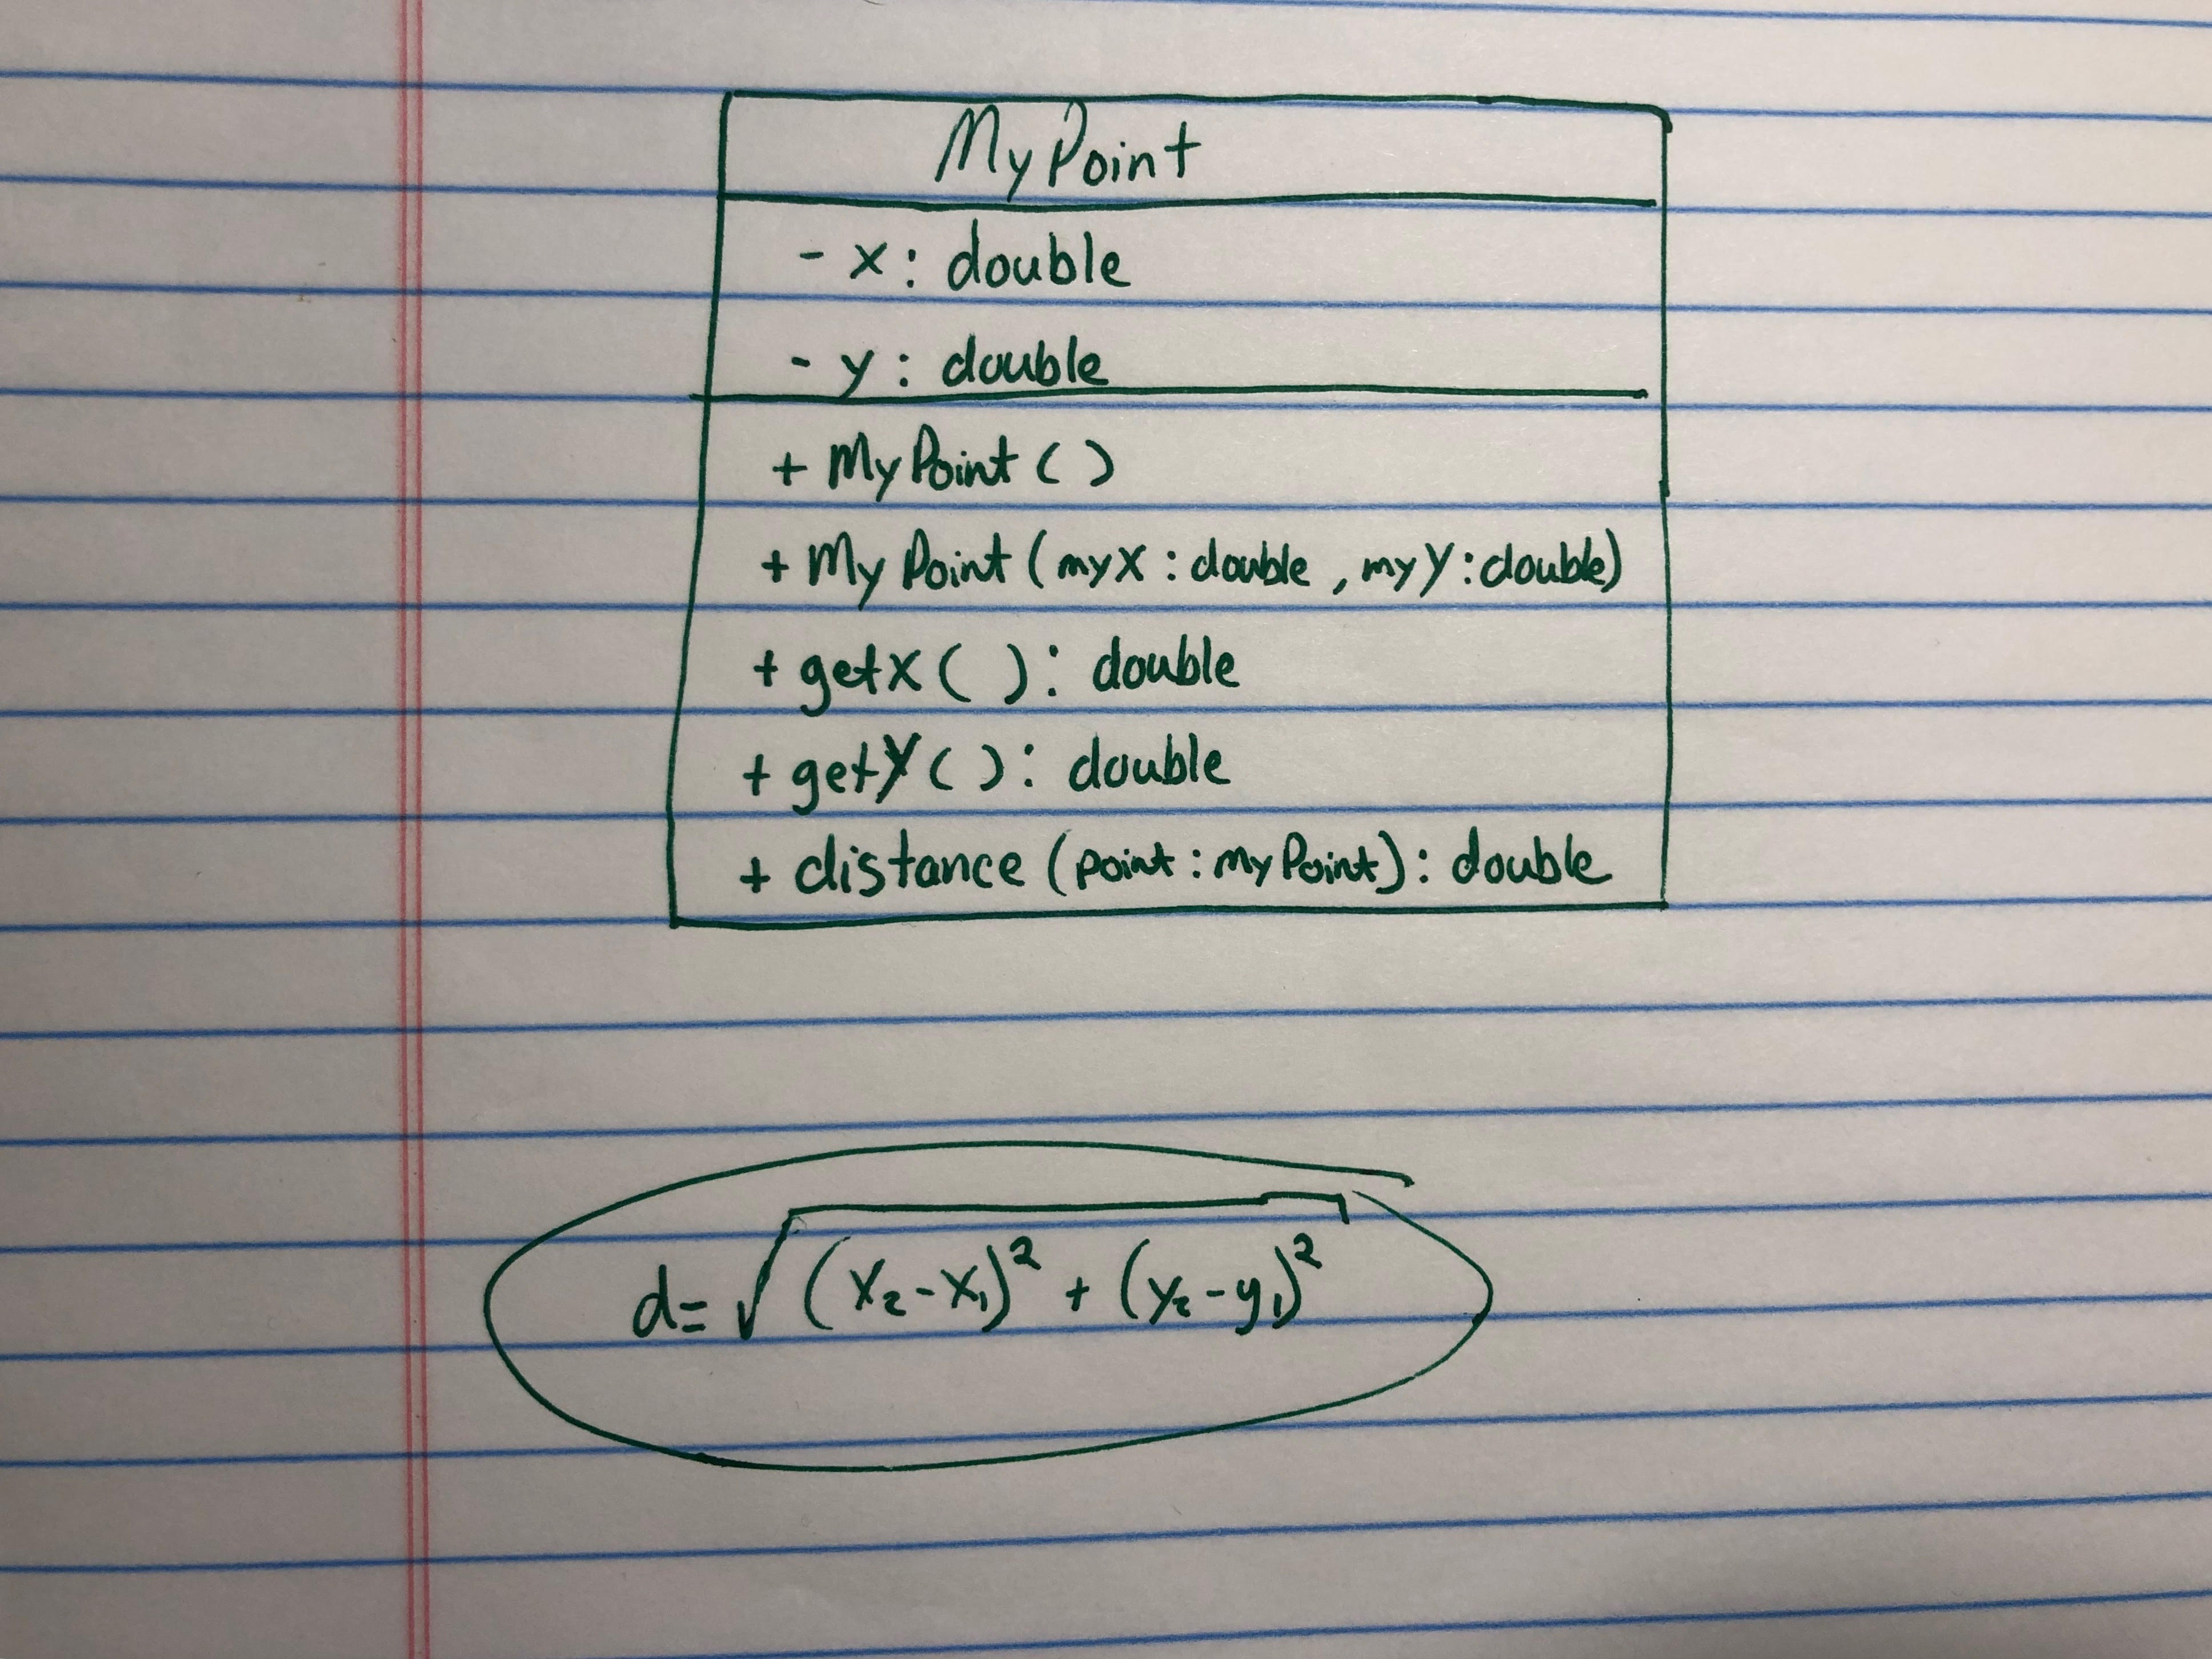 MyPoint
- x : double
- y : double
+ MyPoint ( )
+ MyPoint (myX : double , myY : double)
+ getX ( ) : double
+ getY ( ) : double
+ distance (point : MyPoint) : double
d = √(x₂ - x₁)² + (y₂ - y₁)²